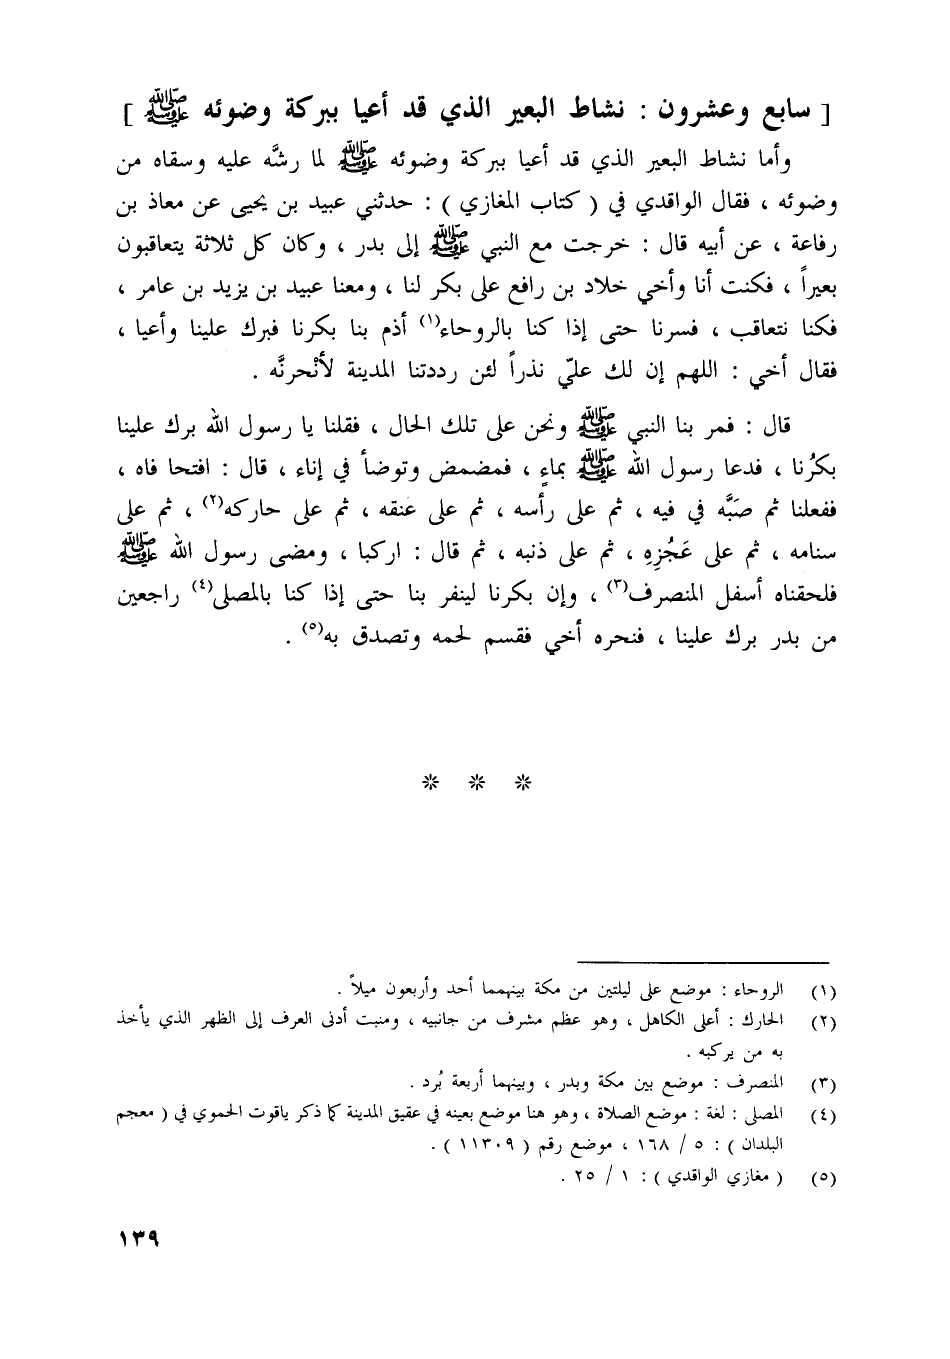 [ سابع وعشرون : نشاط البعير الذي قد أعيا ببركة وضوئه ﷺ ]
وأما نشاط البعير الذي قد أعيا ببركة وضوئه ﷺ لما رشَّه عليه وسقاه من
وضوئه ، فقال الواقدي في ( كتاب المغازي ) : حدثني عبيد بن يحيى عن معاذ بن
رفاعة ، عن أبيه قال : خرجت مع النبي ﷺ إلى بدر ، وكان كل ثلاثة يتعاقبون
بعيراً ، فكنت أنا وأخي خلاد بن رافع على بكر لنا ، ومعنا عبيد بن يزيد بن عامر ،
فكنا نتعاقب ، فسرنا حتى إذا كنا بالروحاء(١) أذم بنا بكرنا فبرك علينا وأعيا ،
فقال أخي : اللهم إن لك عليّ نذراً لئن رددتنا المدينة لأنْحرنَّه .
قال : فمر بنا النبي ﷺ ونحن على تلك الحال ، فقلنا يا رسول الله برك علينا
بكرُنا ، فدعا رسول الله ﷺ بماءٍ ، فمضمض وتوضأ في إناء ، قال : افتحا فاه ،
ففعلنا ثم صَبَّه في فيه ، ثم على رأسه ، ثم على عنقه ، ثم على حاركه(٢) ، ثم على
سنامه ، ثم على عَجُزِهِ ، ثم على ذنبه ، ثم قال : اركبا ، ومضى رسول الله ﷺ
فلحقناه أسفل المنصرف(٣) ، وإن بكرنا لينفر بنا حتى إذا كنا بالمصلى(٤) راجعين
من بدر برك علينا ، فنحره أخي فقسم لحمه وتصدق به(٥) .
* * *
(١) الروحاء : موضع على ليلتين من مكة بينهمما أحد وأربعون ميلاً .
(٢) الحارك : أعلى الكاهل ، وهو عظم مشرف من جانبيه ، ومنبت أدنى العرف إلى الظهر الذي يأخذ
به من يركبه .
(٣) المنصرف : موضع بين مكة وبدر ، وبينهما أربعة بُرد .
(٤) المصلى : لغة : موضع الصلاة ، وهو هنا موضع بعينه في عقيق المدينة كما ذكر ياقوت الحموي في ( معجم
البلدان ) : ٥ / ١٦٨ ، موضع رقم ( ١١٣٠٩ ) .
(٥) ( مغازي الواقدي ) : ١ / ٢٥ .
١٣٩